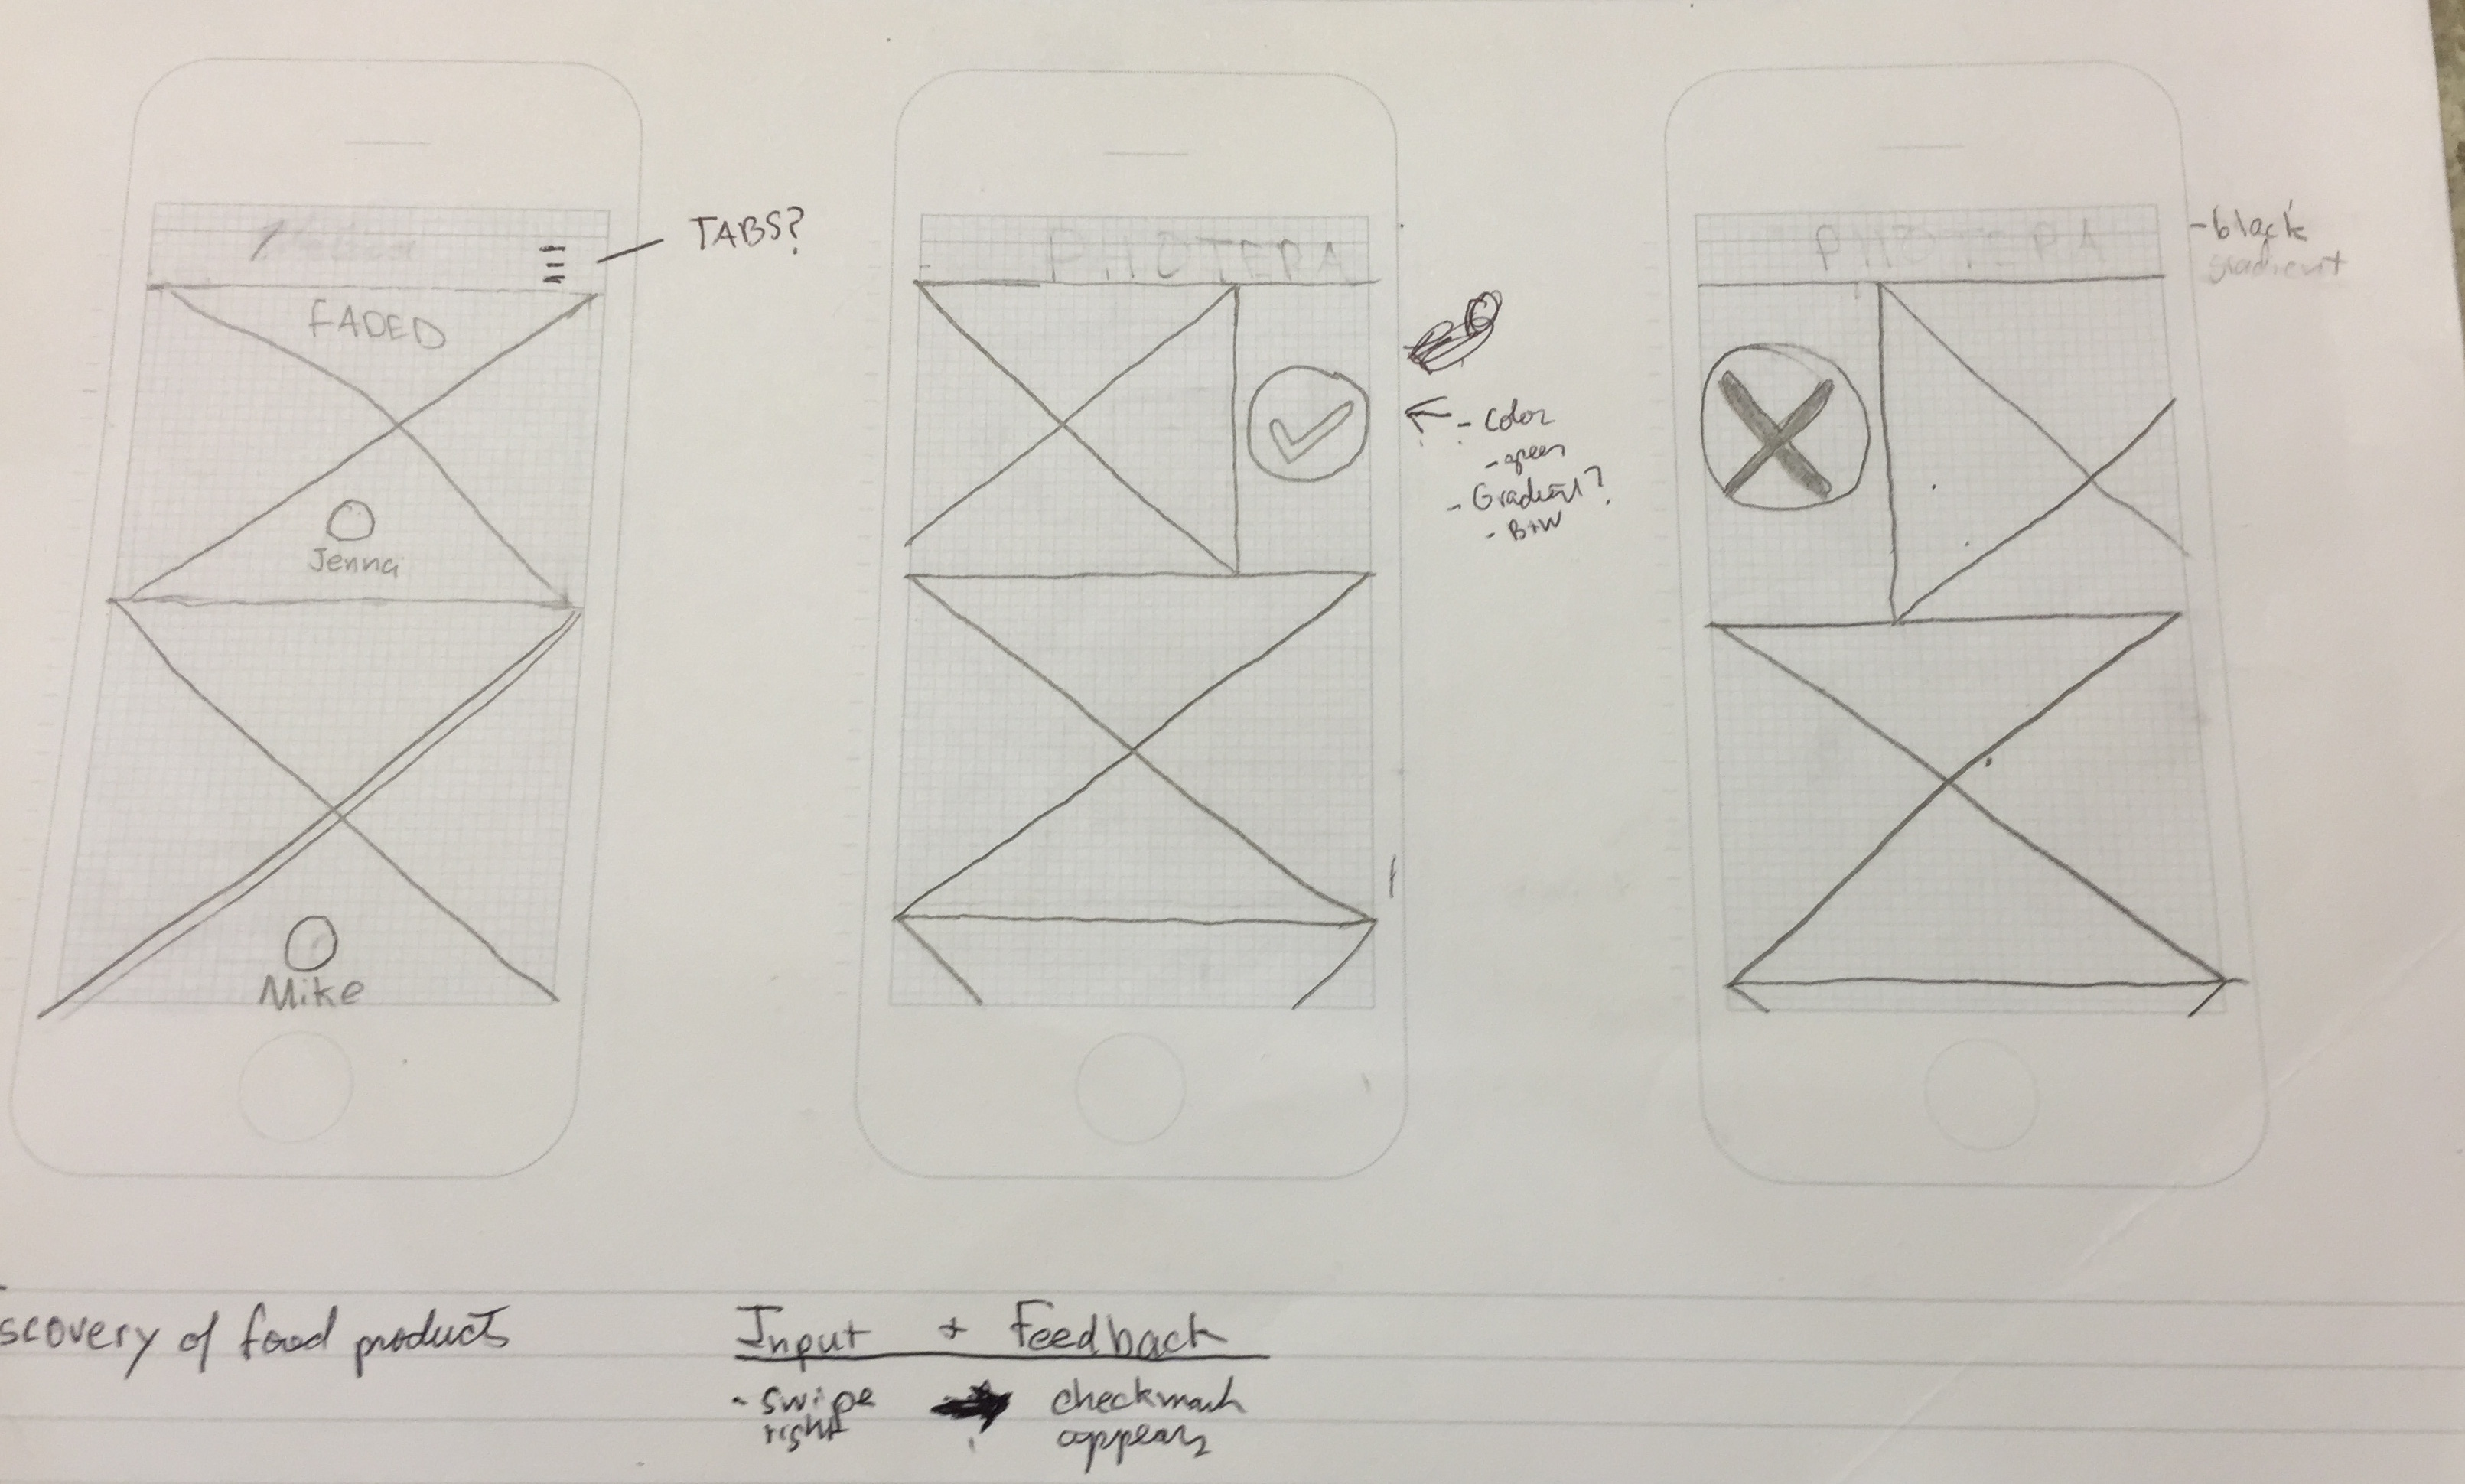 TABS?
FADED
Jenna
Mike
PHOTERA
- Color
- green
- Gradient?
- B+W
PHOTERA
- black
gradient
scovery of food products
Input + Feedback
- swipe
right
checkmark
appears